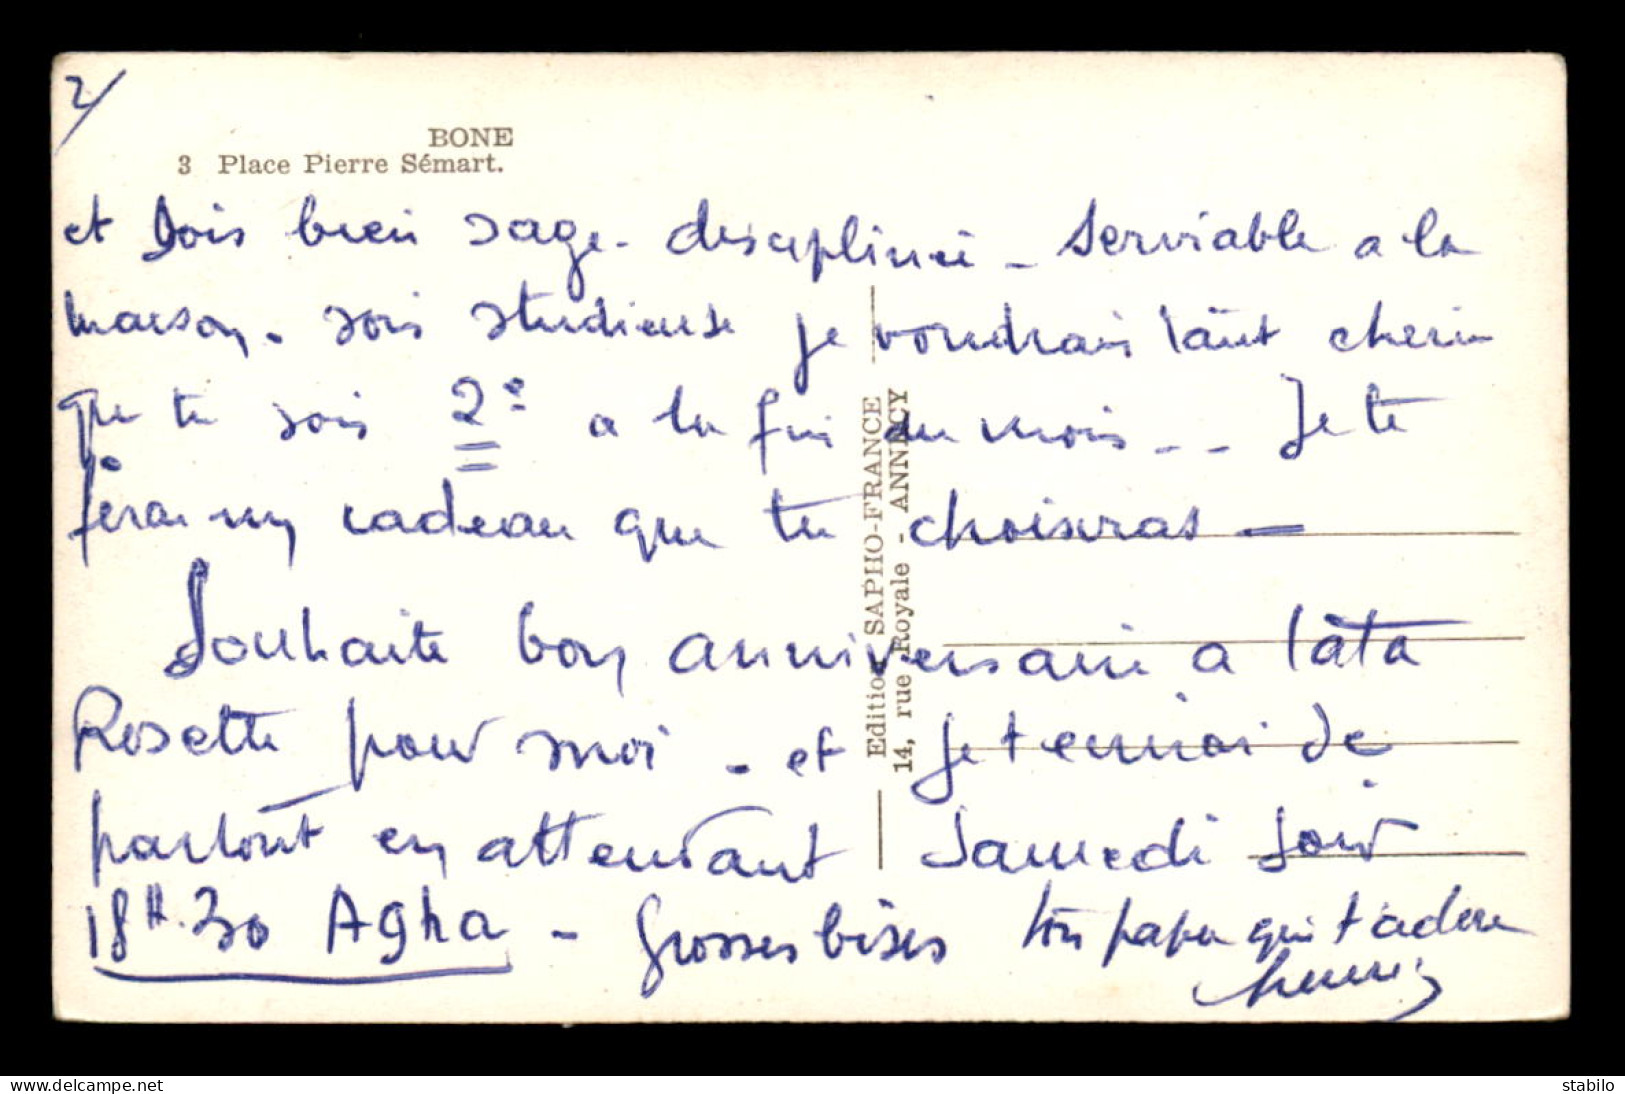 2/
BONE
3 Place Pierre Sémart.
et sois bien sage - disciplinée - serviable a la
maison - sois studieuse je voudrais tant cherie
que tu sois 2e a la fin du mois - - Je te
ferai un cadeau que tu choisiras -
Souhaite bon anniversaire a tata
Rosette pour moi - et je t envoi de
partout en attendant Samedi soir
18H.30 Agha - Grosses bises ton papa qui t'adore
Edition SAPHO-FRANCE
14, rue Royale - ANNECY
delcampe.net
stabilo